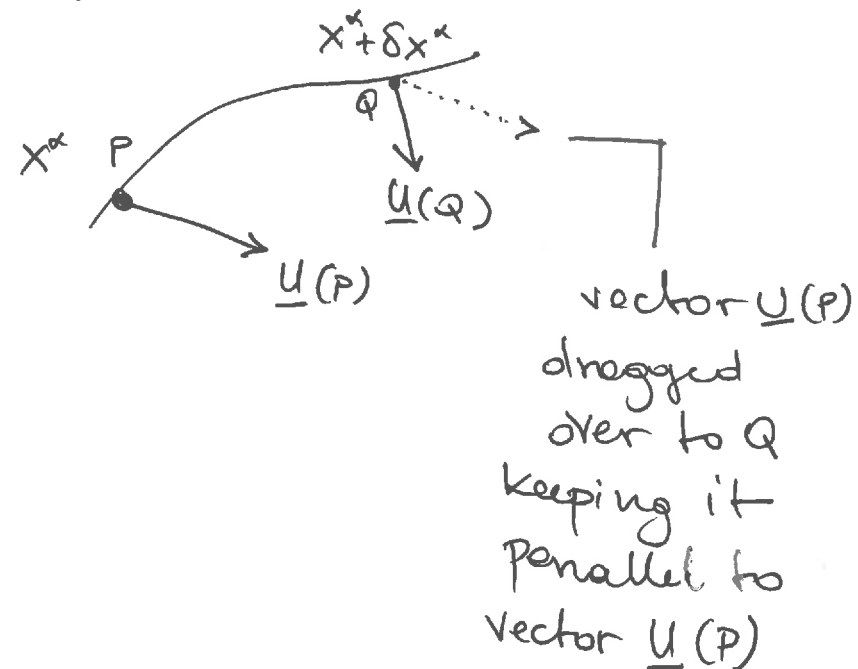 x^α + δx^α
Q
x^α P
U(Q)
U(P)
vector U(P)
dragged
over to Q
keeping it
parallel to
vector U(P)